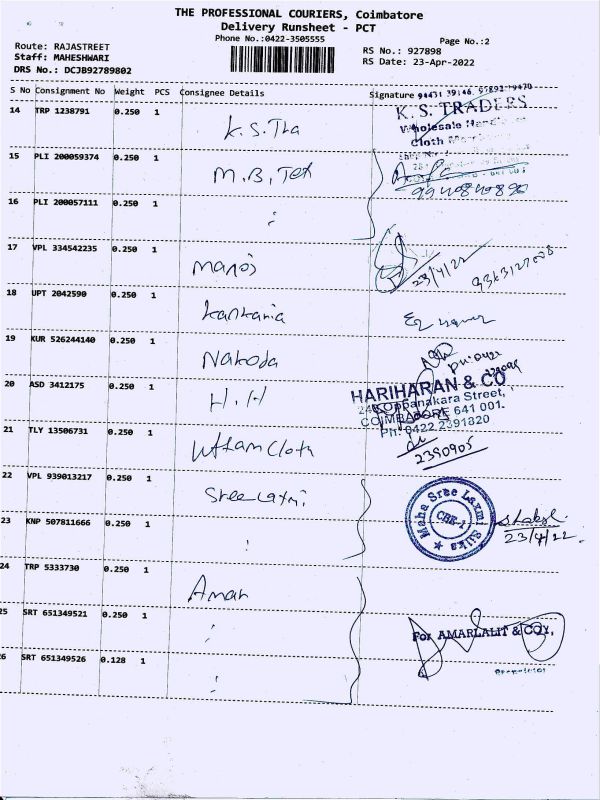 THE PROFESSIONAL COURIERS, Coimbatore
Delivery Runsheet - PCT
Phone No.:0422-3505555
Page No.:2
Route: RAJASTREET
Staff: MAHESHWARI
DRS No.: DCJB92789802
RS No.: 927898
RS Date: 23-Apr-2022
S No Consignment No Weight PCS Consignee Details Signature
94431 39146,
K. S. TRADERS
Wholesale
Cloth
14 TRP 1238791 0.250 1 K.S. Tra
15 PLI 200059374 0.250 1 M.B, Tex
9940840896
16 PLI 200057111 0.250 1
17 VPL 334542235 0.250 1 manoj
23/4/22
9363127008
18 UPT 2042590 0.250 1 kankaria
19 KUR 526244140 0.250 1 Nakoda
20 ASD 3412175 0.250 1 H.H
HARIHARAN & CO
Oppanakara Street,
COIMBATORE 641 001.
Ph: 0422 2391820
21 TLY 13506731 0.250 1 Uttam Cloth
2390905
22 VPL 939013217 0.250 1 Sree Laxmi
Maha Sree Laxmi Silks
CBE-1
23/4/22.
23 KNP 507811666 0.250 1
24 TRP 5333730 0.250 1 Amar
25 SRT 651349521 0.250 1
For AMARLALIT & COY,
Proprietor
26 SRT 651349526 0.128 1